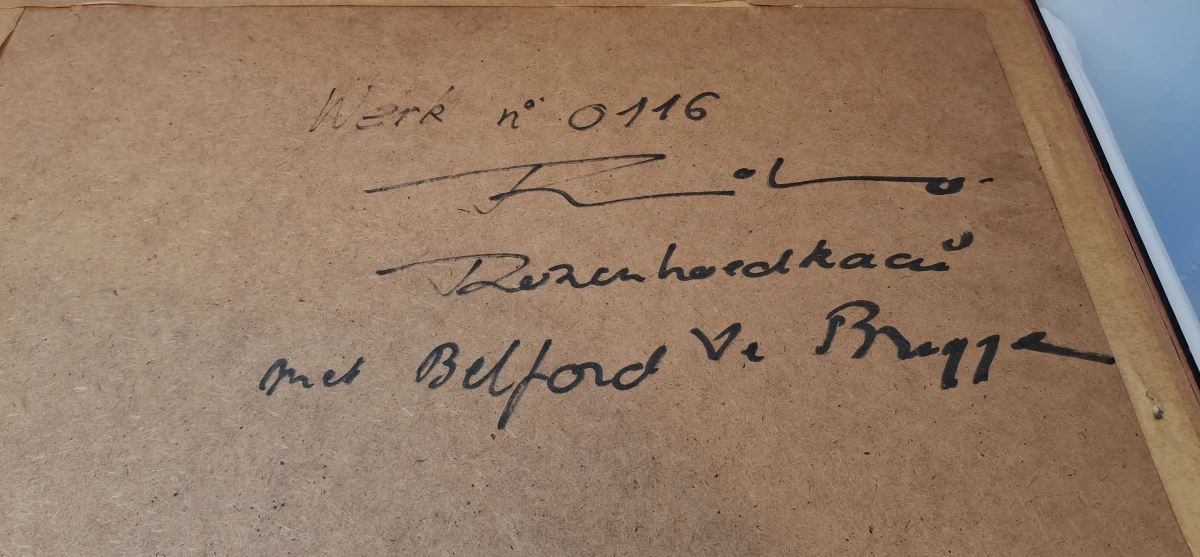 Werk n° 0116
Rozenhoedkaai
met Belford te Brugge